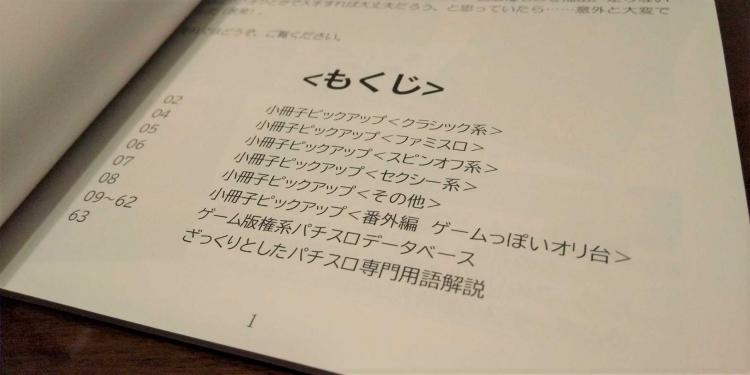 と思っていたら……意外と大変で
どうぞ、ご覧ください。
<もくじ>
02 小冊子ピックアップ<クラシック系>
04 小冊子ピックアップ<ファミスロ>
05 小冊子ピックアップ<スピンオフ系>
06 小冊子ピックアップ<セクシー系>
07 小冊子ピックアップ<その他>
08 小冊子ピックアップ<番外編 ゲームっぽいオリ台>
09~62 ゲーム版権系パチスロデータベース
63 ざっくりとしたパチスロ専門用語解説
1